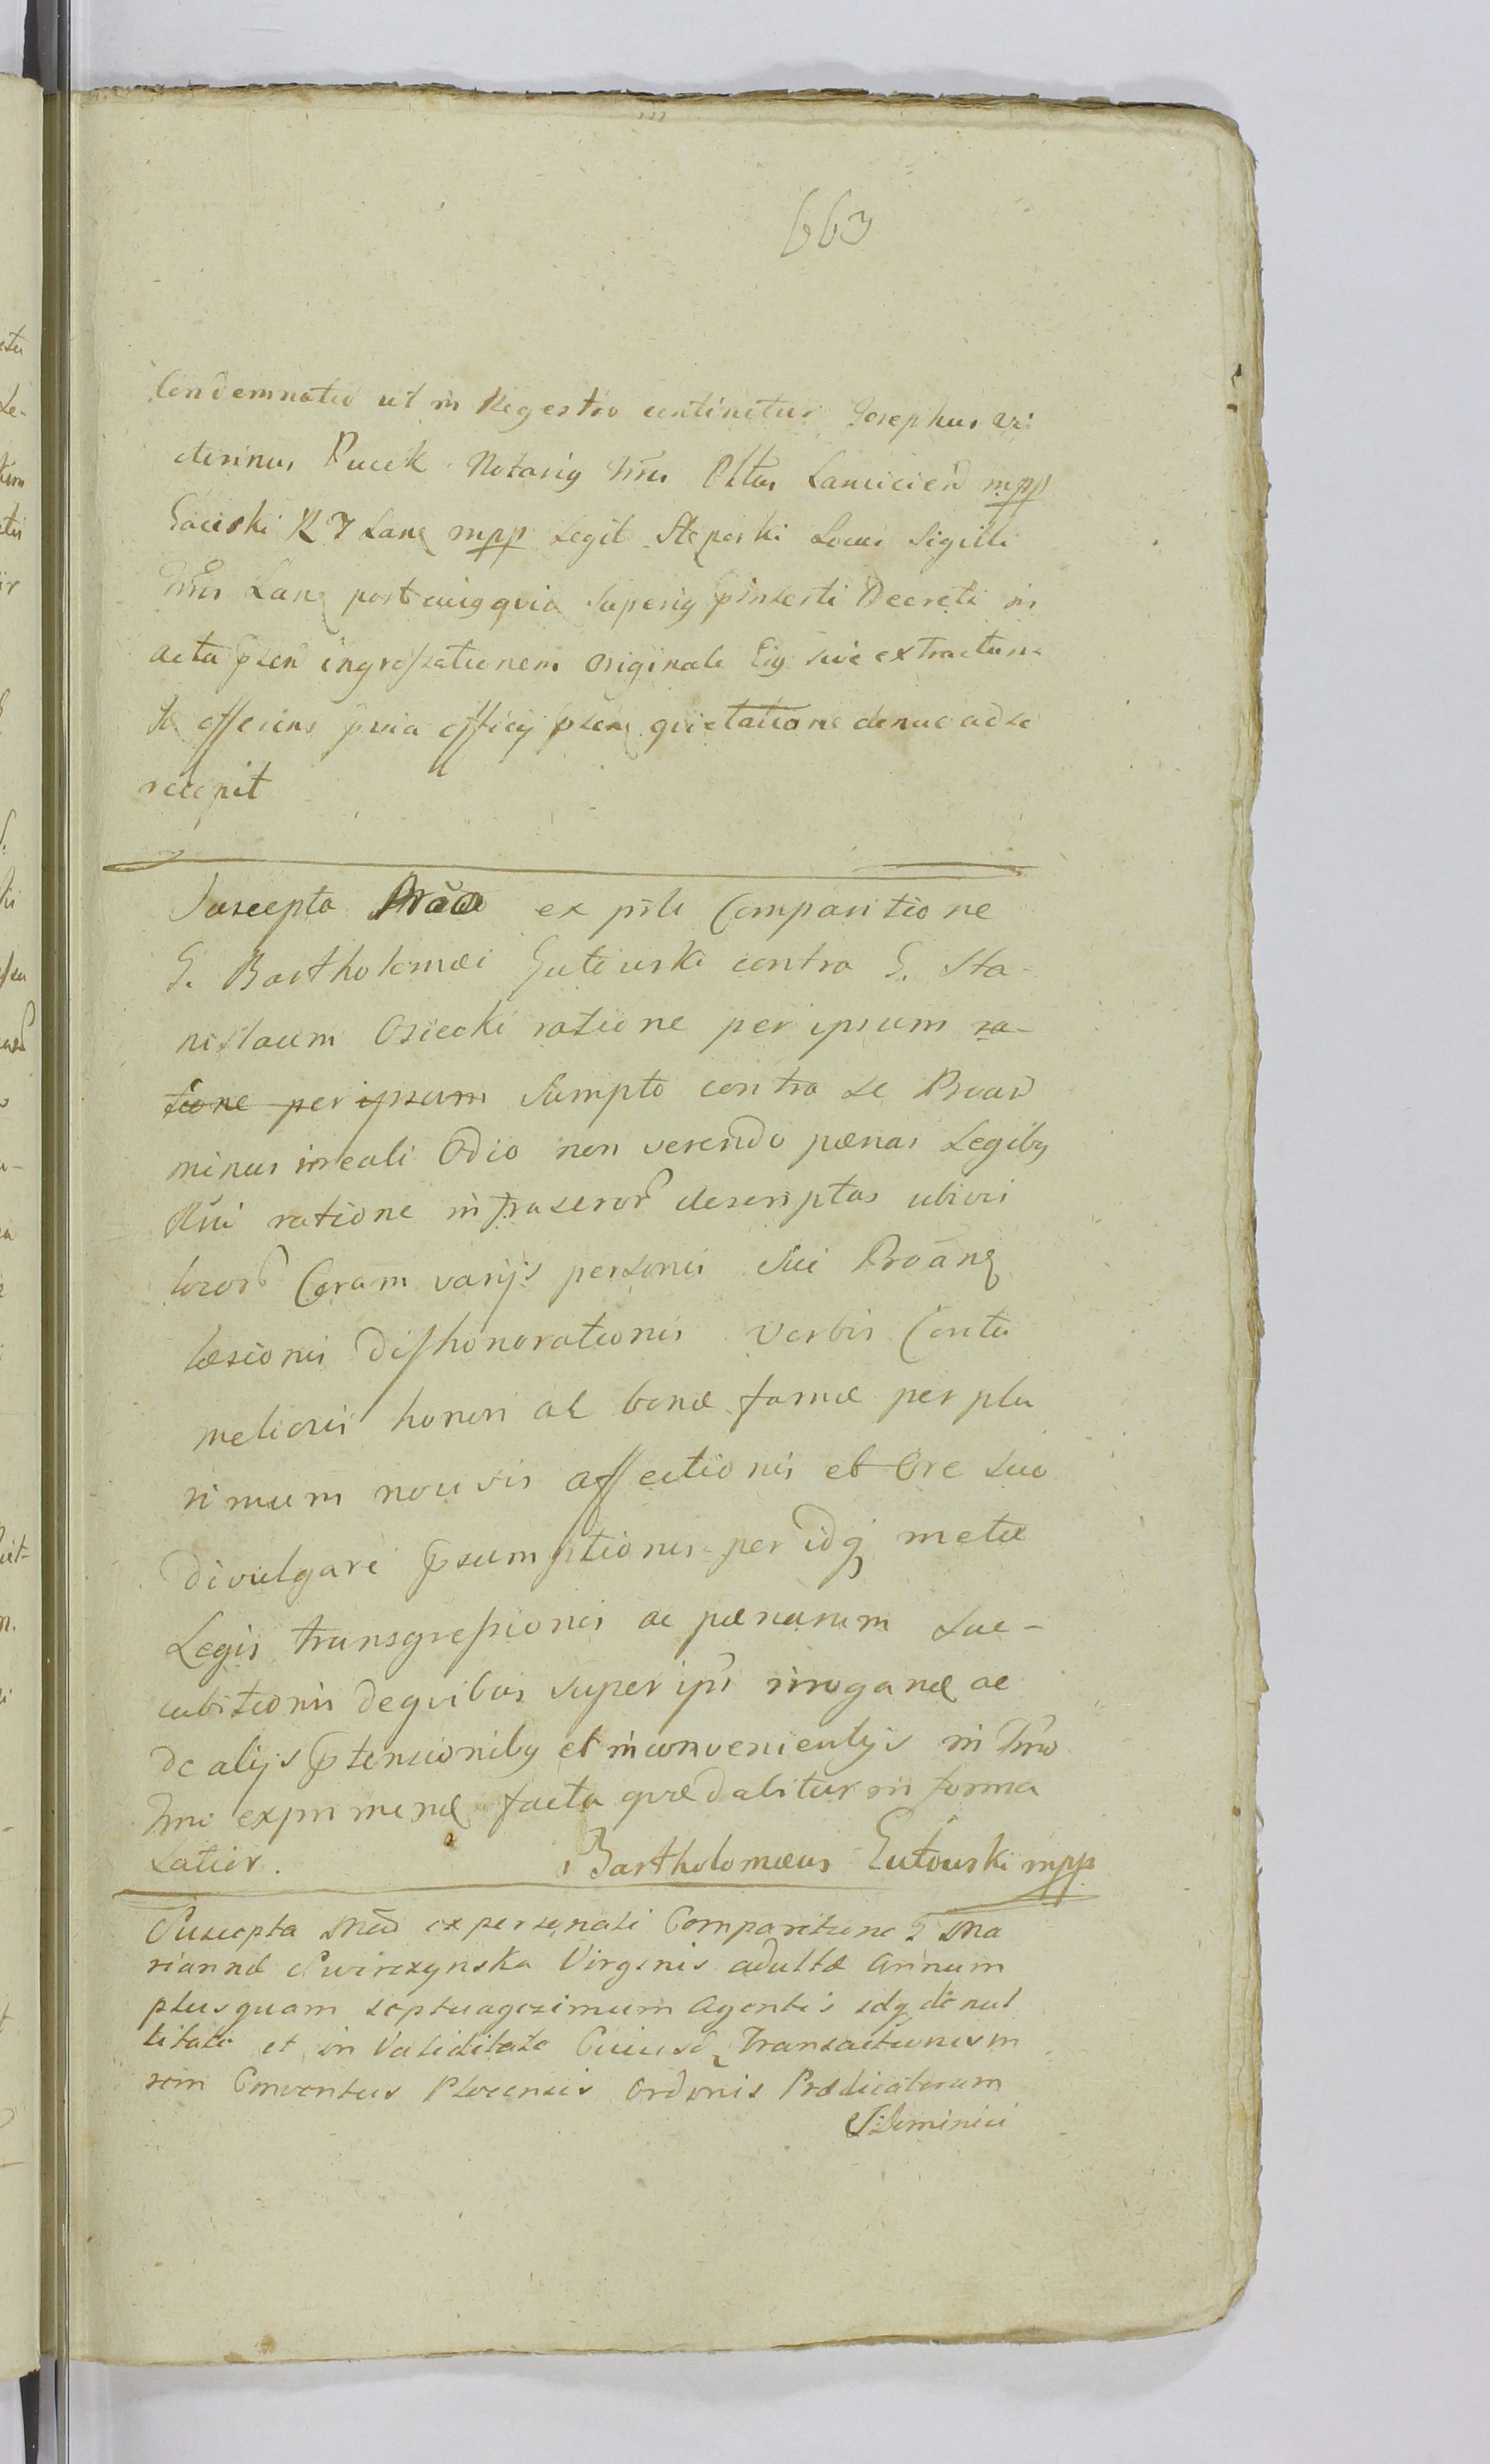 663
Condemnatio ut in Regestro continetur Josephus Vi:
ctorinus Pucek Notariq Trris Cttus Lancicien mpp
Gaciski R T Lanc mpp Legit Steposki Locus Sigilli
Trris Lanc post cuiq quid Superiq pinserti Decreti in
acta psen ingrossationem originale Eiq sive extractum
Idem offerens pria officij psen quietatione denuo ad se
recepit
Suscepta Mão ex psli Comparitione
G. Bartholomæi Gutowski contra G. Sta-
nislaum Osiecki ratione per ipsum ra-
tione per ipsum Sumpto contra se Proare
minus in reali Odio non verendo pænas Legibq
Rni ratione infraseror descriptas ubivis
locor Coram varijs personis Sui Proanq
læsionis Dishonorationis Verbis Contu
meliosis honori ac bonæ famæ per plu
rimum nocivis affectionis et Ore suo
divulgari psumptionis per idq metæ
Legis transgressionis ac pænarum suc-
cubitionis de quibus super ipso irrogand ac
de alijs ptensionibq et inconvenientijs in Trno
Trmi exprimend facta quæ dabitur in forma
Latior.
Bartholomæus Gutowski mpp
Suscepta Mão ex personali Comparitione G Ma
riannæ Swirczynska Virginis adultæ annum
plusquam septuagesimum Agentis idq de nul
litate et in Validitate Cuiusd Transactionis in
rem Conventus Plocensis Ordinis Prædicatorum
S: Dominici